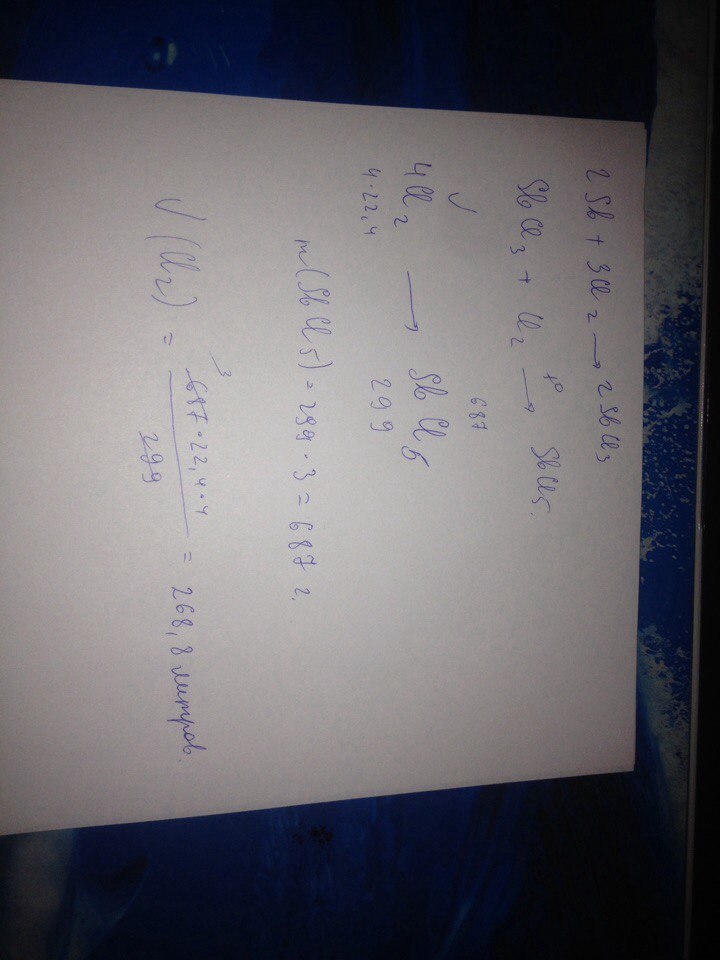 2Sb + 3Cl2 → 2SbCl3
SbCl3 + Cl2 t° → SbCl5.
V 687
4Cl2 → SbCl5
4·22,4 299
m(SbCl5) = 299 · 3 = 687 г.
V(Cl2) = 687·22,4·4 / 299 = 268,8 литров.
3